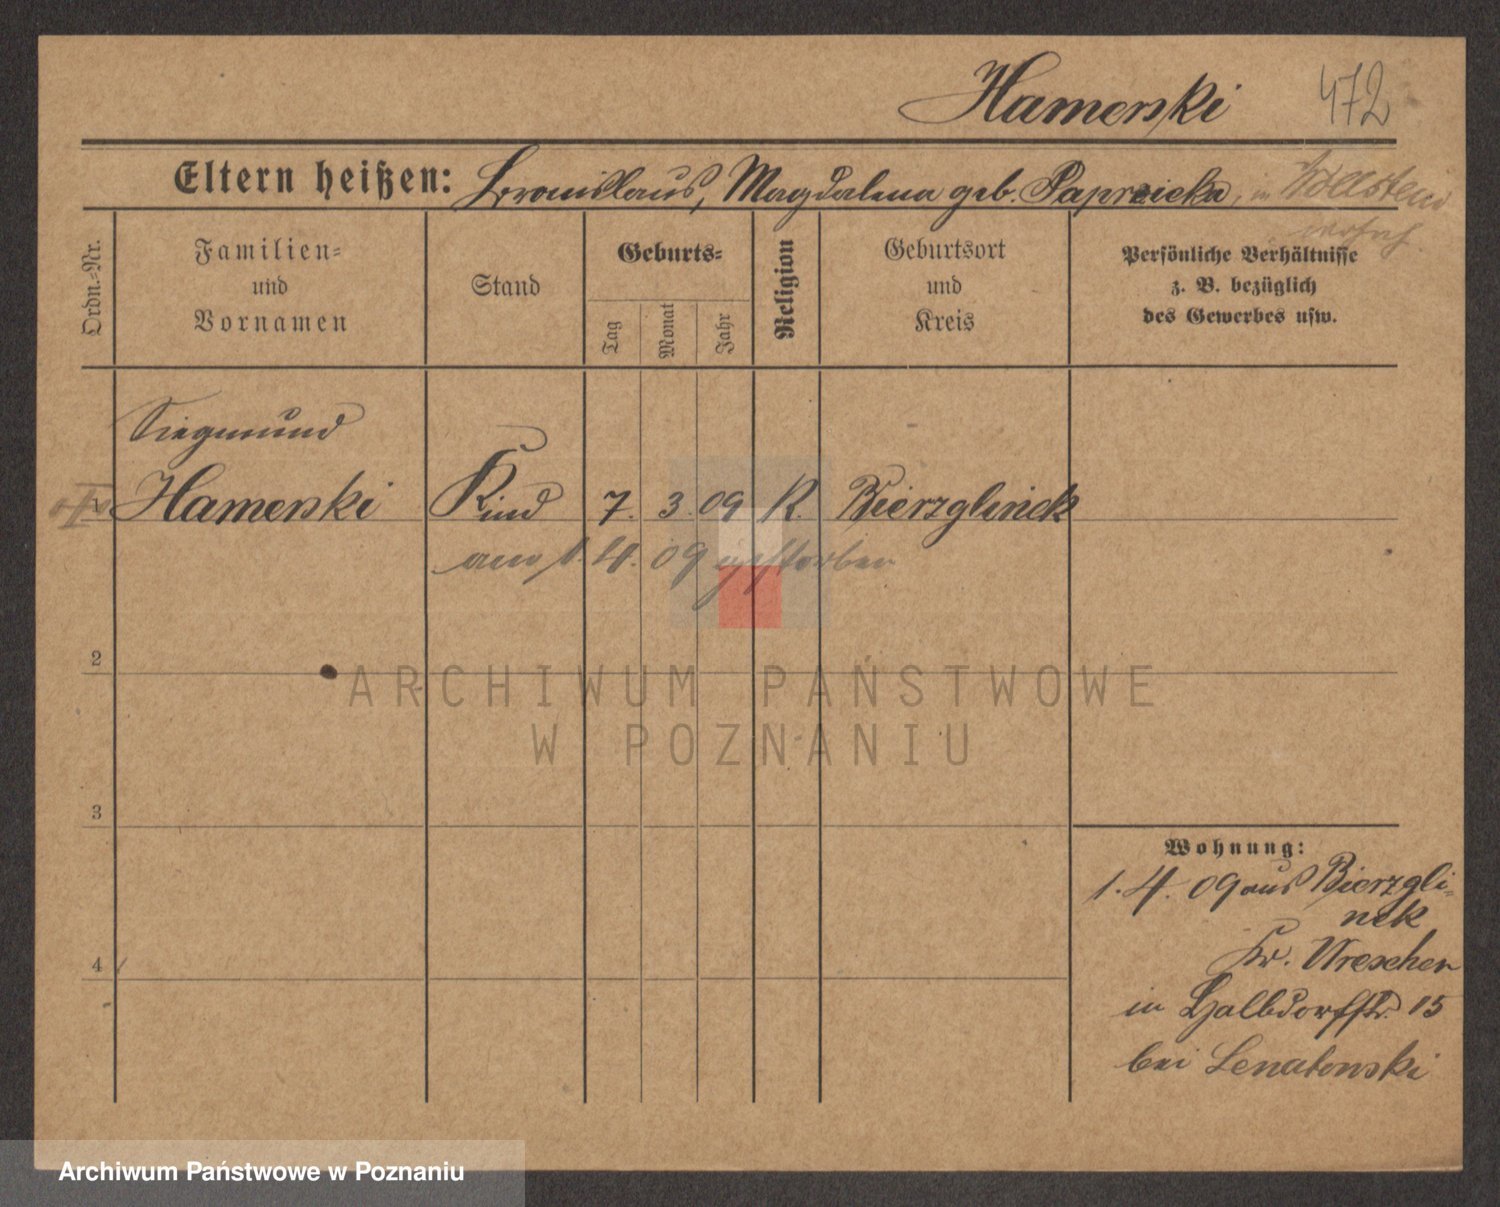 Hamerski 472
Eltern heißen: Bronislaus, Magdalena geb. Paprzicka, in Wollstein
wohnh.
Ordn.-Nr.
Familien-
und
Vornamen
Stand
Geburts-
Tag
Monat
Jahr
Religion
Geburtsort
und
Kreis
Persönliche Verhältnisse
z. B. bezüglich
des Gewerbes usw.
Siegmund
Hamerski Kind 7. 3. 09 K. Bierzglinek
am 1. 4. 09 gestorben
2
3
4
Wohnung:
1. 4. 09 aus Bierzgli-
nek
Kr. Wreschen
in Halbdorfstr. 15
bei Lenatowski
ARCHIWUM PAŃSTWOWE
W POZNANIU
Archiwum Państwowe w Poznaniu